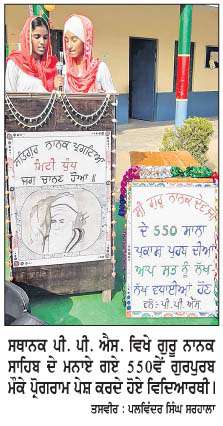 ਸਤਿਗੁਰ ਨਾਨਕ ਪ੍ਰਗਟਿਆ
ਮਿਟੀ ਧੁੰਧ
ਜਗ ਚਾਨਣ ਹੋਆ॥
ਸ੍ਰੀ ਗੁਰੂ ਨਾਨਕ ਦੇਵ ਜੀ
ਦੇ 550 ਸਾਲਾ
ਪ੍ਰਕਾਸ਼ ਪੁਰਬ ਦੀਆਂ
ਆਪ ਸਭ ਨੂੰ ਲੱਖ
ਲੱਖ ਵਧਾਈਆਂ ਹੋਣ
ਵਲੋਂ: ਪੀ.ਪੀ.ਐਸ
ਸਥਾਨਕ ਪੀ. ਪੀ. ਐਸ. ਵਿਖੇ ਗੁਰੂ ਨਾਨਕ
ਸਾਹਿਬ ਦੇ ਮਨਾਏ ਗਏ 550ਵੇਂ ਗੁਰਪੁਰਬ
ਮੌਕੇ ਪ੍ਰੋਗਰਾਮ ਪੇਸ਼ ਕਰਦੇ ਹੋਏ ਵਿਦਿਆਰਥੀ।
ਤਸਵੀਰ : ਪਲਵਿੰਦਰ ਸਿੰਘ ਸਰਹਾਲਾ